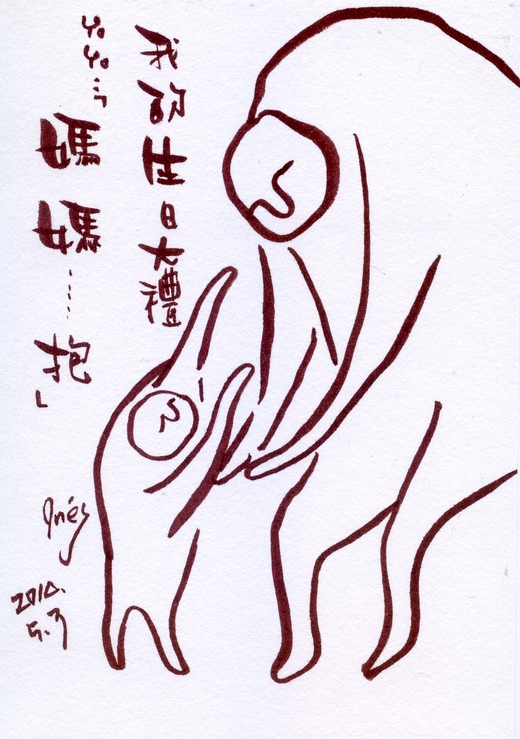 我的生日大禮
YoYo:「媽媽……抱」
Inés
2010.
5.3